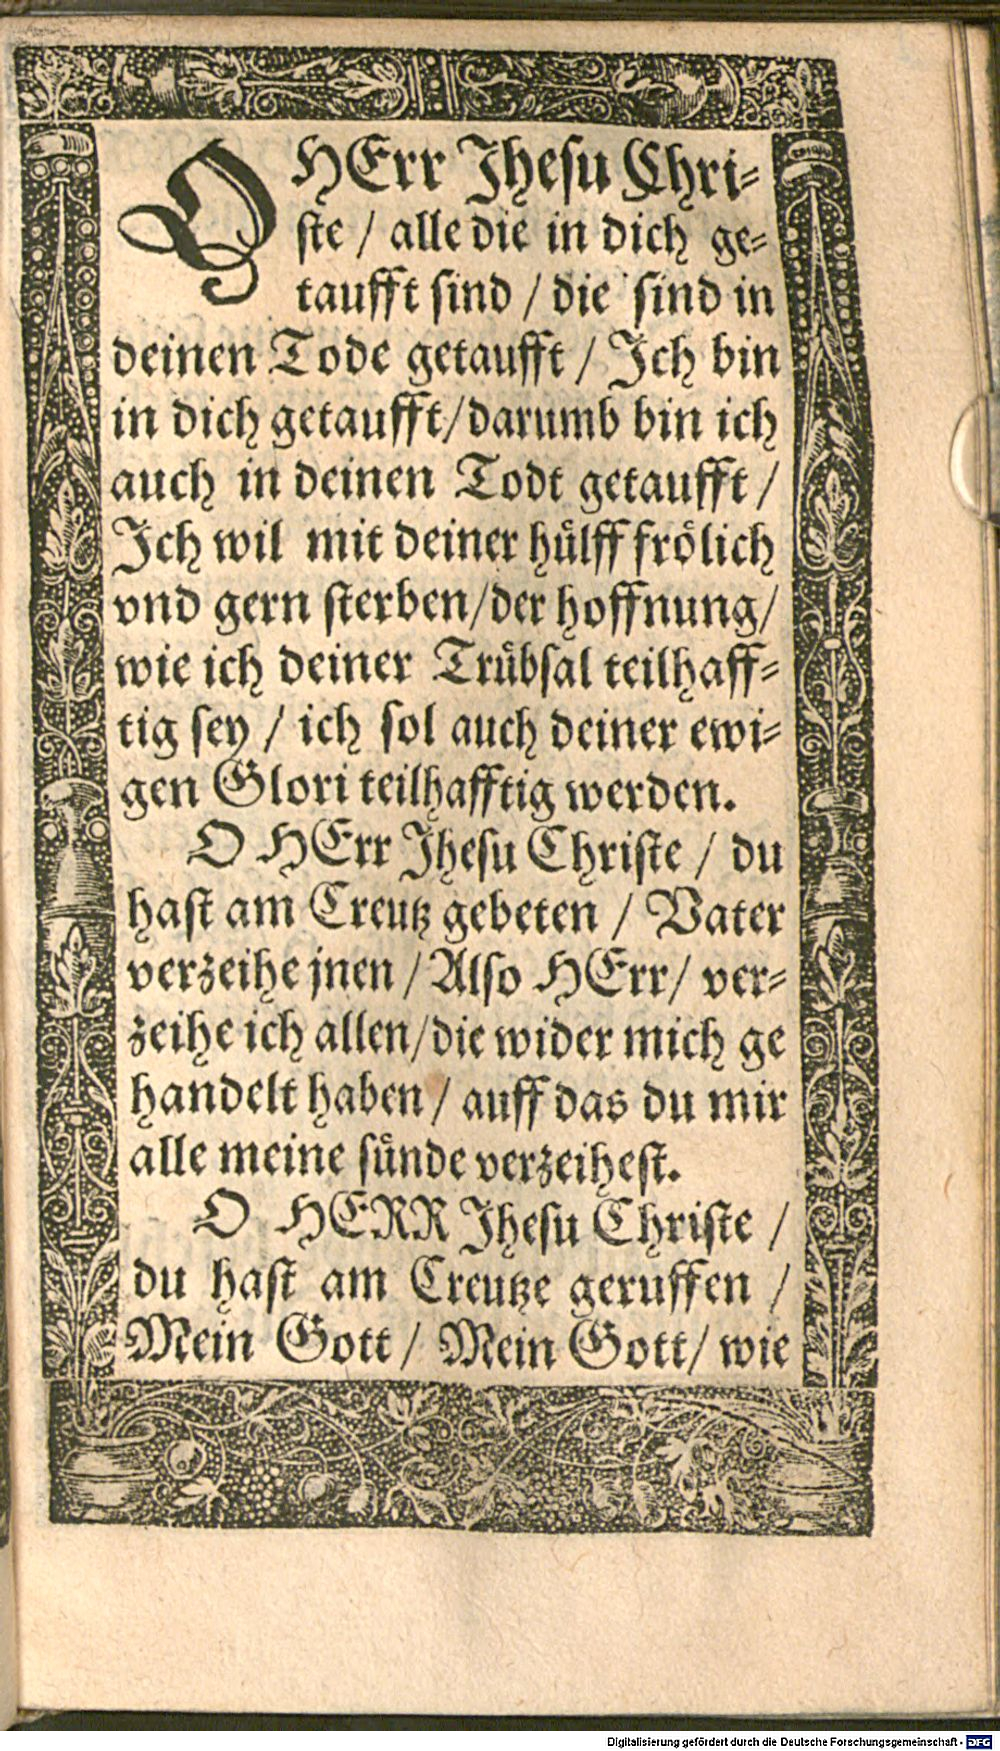 O HErr Jhesu Chri-
ste / alle die in dich ge-
taufft sind / die sind in
deinen Tode getaufft / Ich bin
in dich getaufft / darumb bin ich
auch in deinen Todt getaufft /
Ich wil mit deiner hülff frölich
vnd gern sterben / der hoffnung /
wie ich deiner Trübsal teilhaff-
tig sey / ich sol auch deiner ewi-
gen Glori teilhafftig werden.
O HErr Jhesu Christe / du
hast am Creutz gebeten / Vater
verzeihe jnen / Also HErr / ver-
zeihe ich allen / die wider mich ge
handelt haben / auff das du mir
alle meine sünde verzeihest.
O HERR Jhesu Christe /
du hast am Creutze geruffen /
Mein Gott / Mein Gott / wie
Digitalisierung gefördert durch die Deutsche Forschungsgemeinschaft - DFG